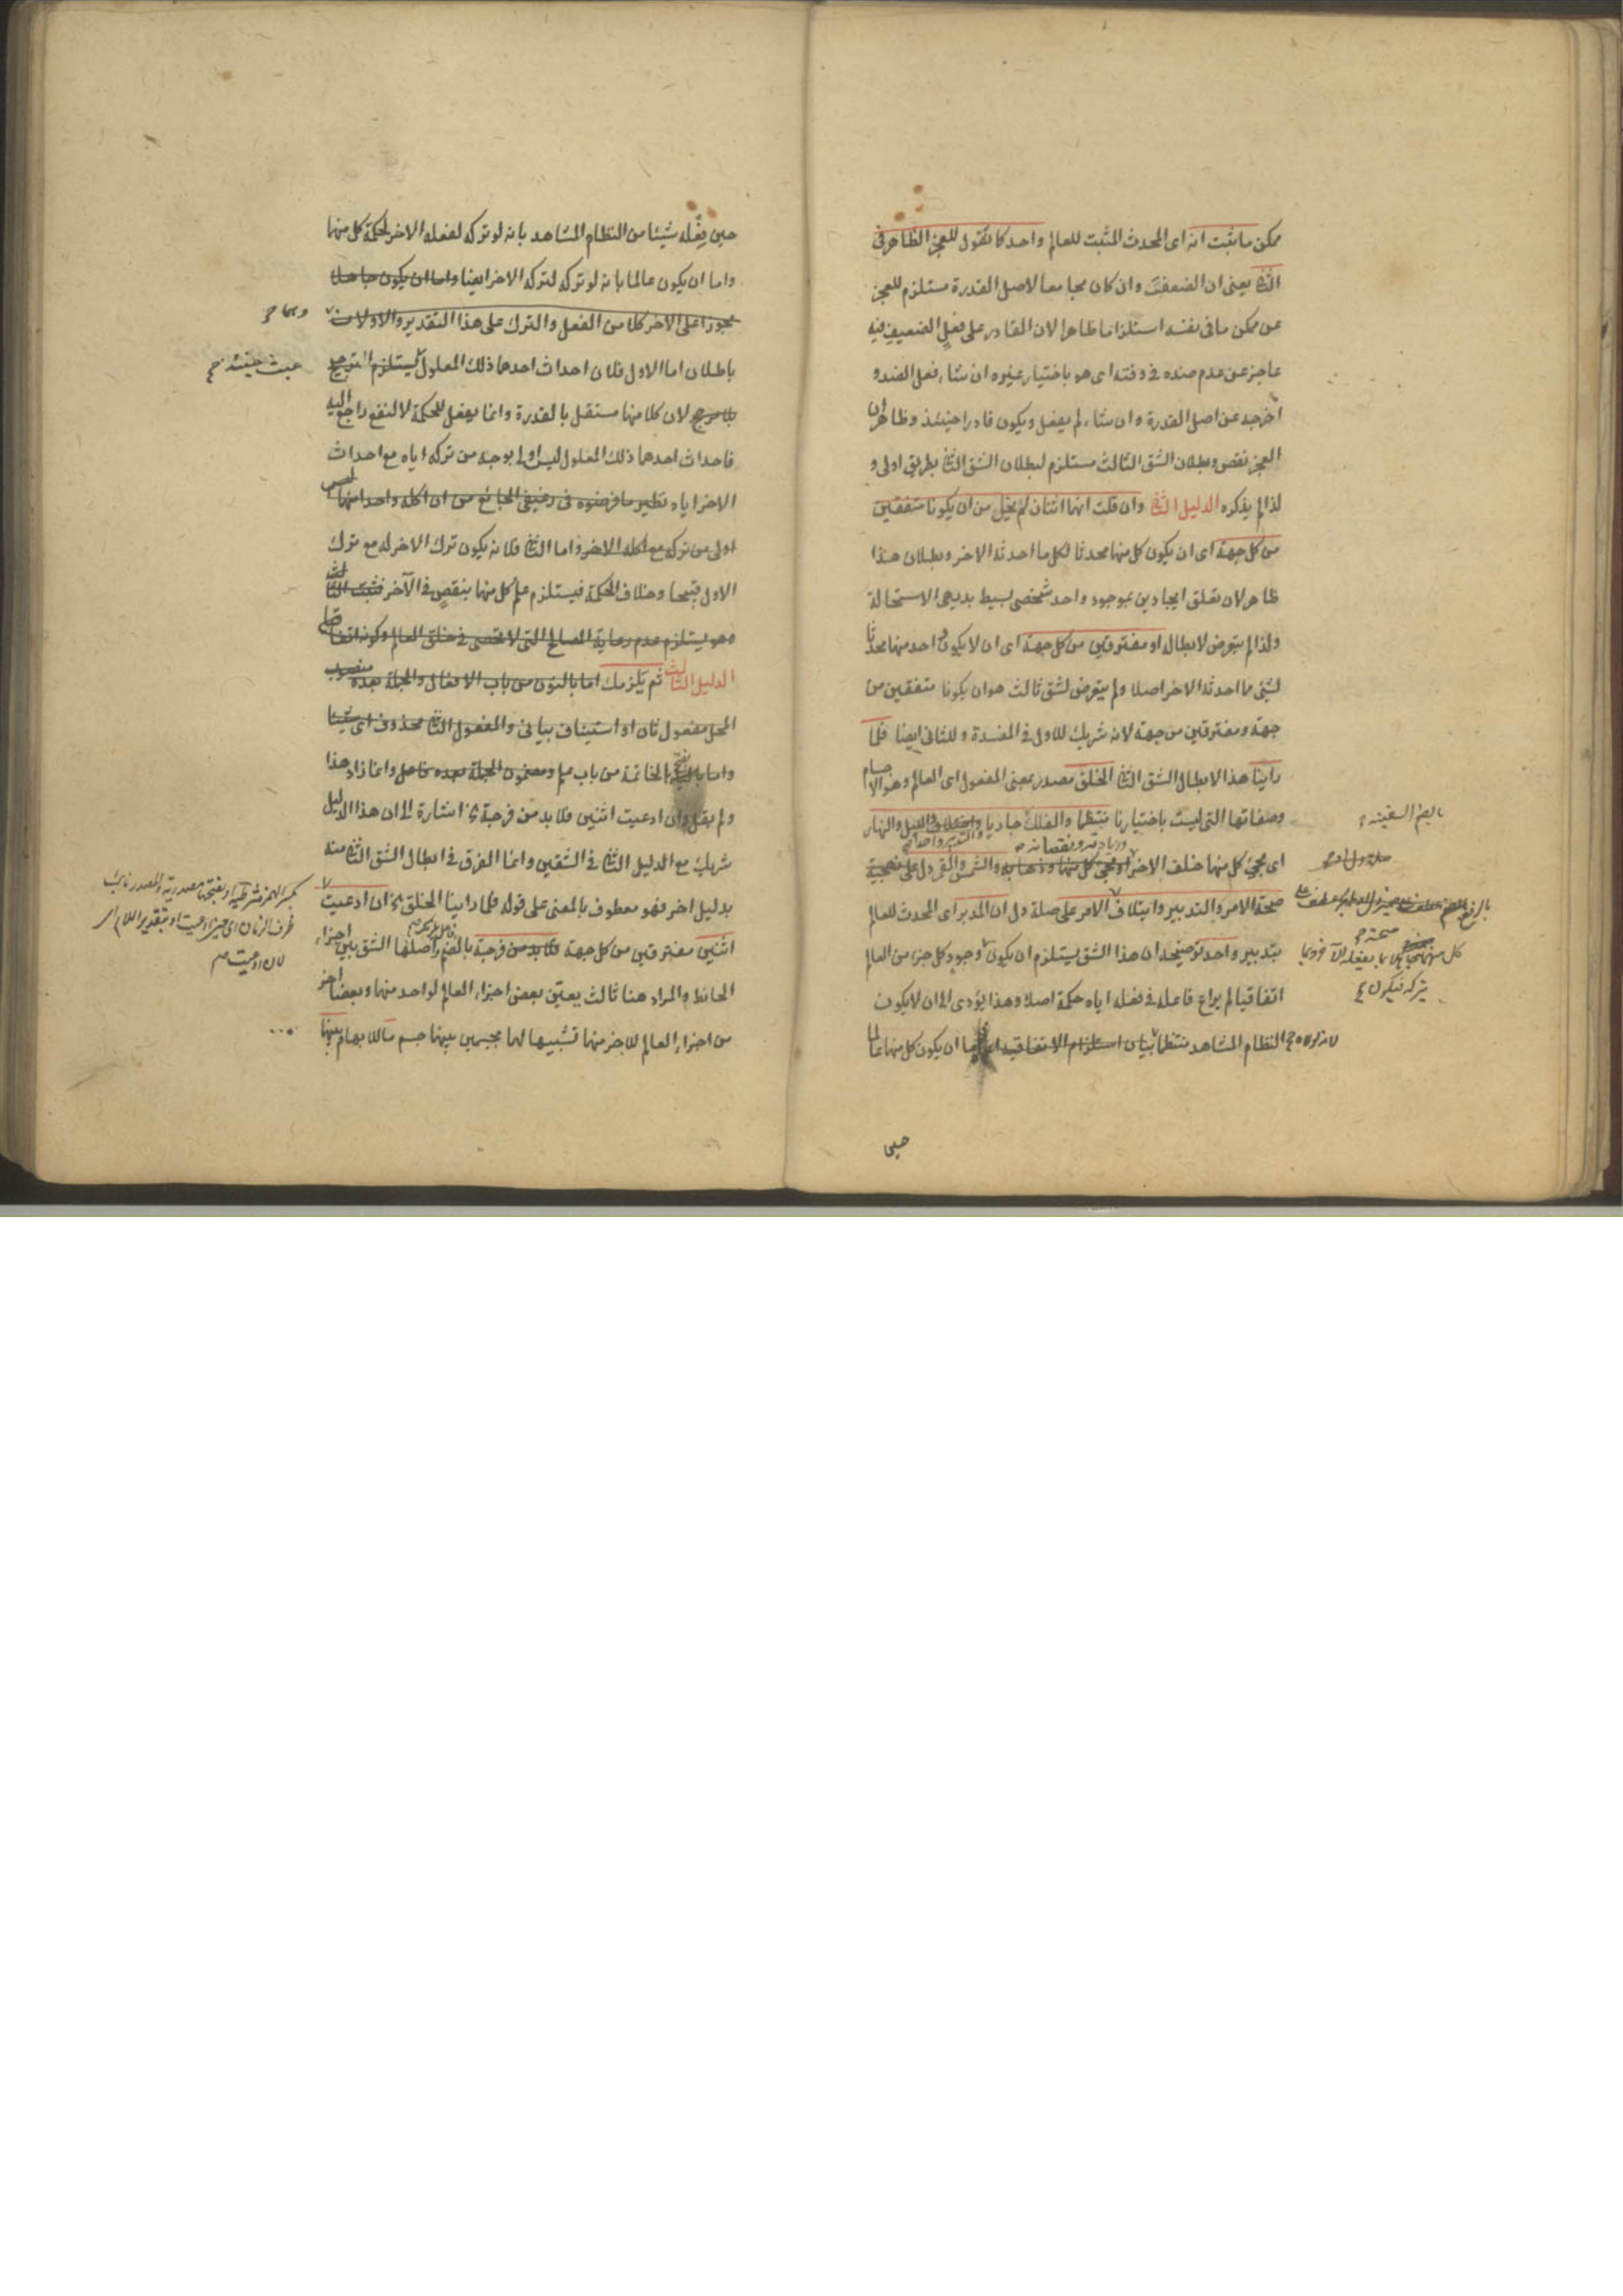 ممكن ما يثبت انه اى المحدث المثبت للعالم واحد كما نقول للعجز الظاهر فى
الثانى يعنى ان الضعف وان كان مجامعا لاصل القدرة مستلزم للعجز
عن ممكن ما فى نفسه استلزاما ظاهرا لان القادر على فعل الضعيف فيه
عاجز عن عدم ضده فى وقته اى هو باختيار غيره ان شاء فعل الضد و
اخرجه عن اصل القدرة وان شاء لم يفعل ويكون قادرا حينئذ وظاهر ان
العجز نقص وبطلان الشق الثالث مستلزم لبطلان الشق الثانى بطريق اولى و
لذا لم يذكره الدليل الثانى وان قلت انهما اثنان لم يخل من ان يكونا متفقين
من كل جهة اى ان يكون كل منهما محدثا لكل ما احدثه الاخر وبطلان هذا
ظاهر لان تعلق ايجادين بموجود واحد شخصى بسيط بديهى الاستحالة
ولذا لم يتعرض لابطاله او مفترقين من كل جهة اى ان لا يكون احد منهما محدثا
لشئ مما احدثه الاخر اصلا ولم يتعرض لشق ثالث هو ان يكونا متفقين من
جهة ومفترقين من جهة لانه شريك للاول فى المفسدة وللثانى ايضا فلما
راينا هذا لابطال الشق الثانى الخلق مصدر بمعنى المفعول اى العالم وهو الاجسام
وصفاتها التى ليست باختيارنا منتظما والفلك جاريا واختلاف الليل والنهار
وزيادته ونقصانه
والتدبير واحدا
اى مجئ كل منهما خلف الاخر او مجئ كل منهما وذهابه والشمس والقمر دل على
صحة الامر والتدبير وايتلاف الامر على صلة دل ان المدبر اى المحدث للعالم
بتدبير واحد توضيحه ان هذا الشق يستلزم ان يكون وجود كل جزء من العالم
اتفاقيا لم يراع فاعله فى فعله اياه حكمة اصلا وهذا يؤدى الى ان لا يكون
النظام المشاهد منتظما بيان استلزام الاتفاقية اما ان يكون كل منهما عالما
حين
بالضم السفينة
صلة دل
كل منهما بما يفعله الآخر وبما
يتركه فيكون
حين فعله شيئا من النظام المشاهد بانه لو تركه لفعله الاخر لحكمة كل منهما
واما ان يكون عالما بانه لو تركه لتركه الاخر ايضا واما ان يكون جاهلا
مجوزا على الاخر كلا من الفعل والترك على هذا التقدير والاولان
باطلان اما الاول فلان احداث احدهما ذلك المعلول يستلزم الترجيح
بلا مرجح لان كلا منهما مستقل بالقدرة وانما يفعل للحكمة لا لنفع راجع اليه
فاحداث احدهما ذلك المعلول ليس اولى بوجه من تركه اياه مع احداث
الاخر اياه نظير ما فرضوه فى رغيفى الجائع من ان اكله واحدا منهما ليس
اولى من تركه مع اكله الاخر واما الثانى فلانه يكون ترك الاخر له مع ترك
الاول قبيحا وخلاف الحكمة فيستلزم علم كل منهما بنقص فى الآخر فثبت الثالث
وهو يستلزم عدم رعاية المصالح التى لا تحصى فى خلق العالم وكونه اتفاقيا
الدليل الثالث ثم يلزمك اما بالنون من باب الافعال والجملة بعده منصوب
المحل مفعول ثان او استيناف بيانى والمفعول الثانى محذوف اى شيئا
واما الخاتمة من باب علم ومضمون الجملة بعده فاعل وانما زاد هذا
ولم يقل وان ادعيت اثنين فلا بد من فرجة الخ اشارة الى ان هذا الدليل
شريك مع الدليل الثانى فى الشقين وانما الفرق فى ابطال الشق الثانى منه
بدليل اخر فهو معطوف بالمعنى على قوله فلما راينا الخلق الخ ان ادعيت
اثنين مفترقين من كل جهة فلا بد من فرجة بالضم واصلها الشق بين اجزاء
الحائط والمراد هنا ثالث يعين بعض اجزاء العالم لواحد منهما وبعضا اخر
من اجزاء العالم للاخر منهما تشبيها لهما بجسمين بينهما جسم مالك بهما بينهما
عبث حينئذ
بكسر الهمزة شرطية او بفتحها مصدرية والمصدر نائب
ظرف الزمان اى حين ادعيت او بتقدير اللام اى
لان ادعيت